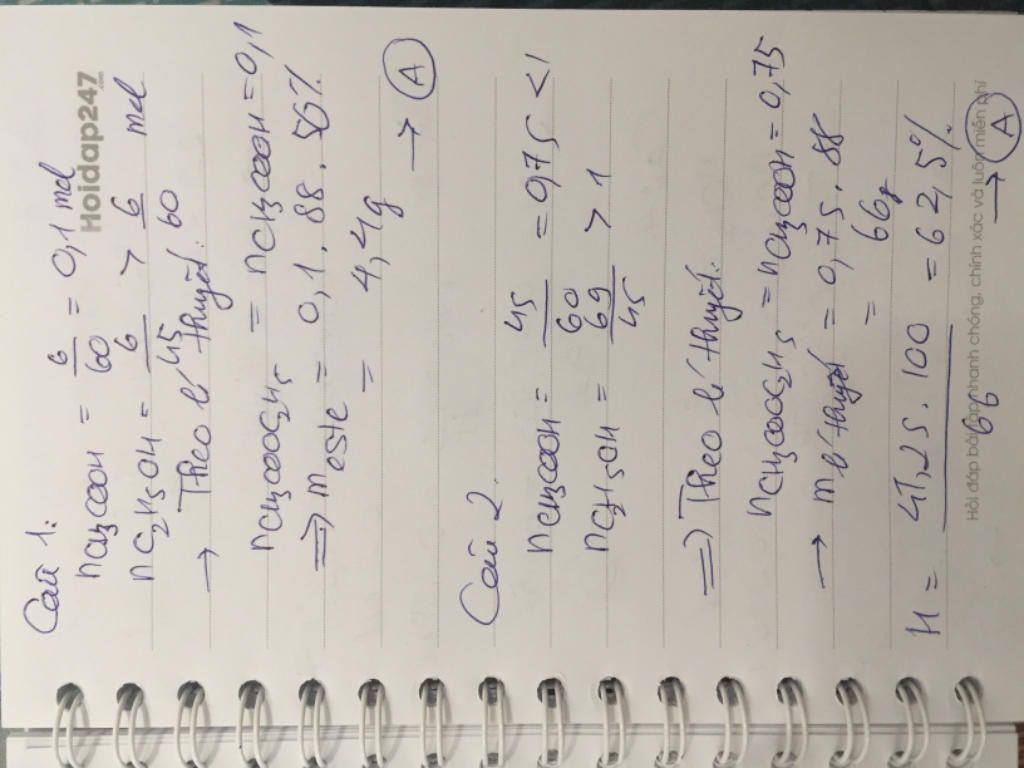 Hoidap247
.com
Câu 1:
nCH3COOH = 6/60 = 0,1 mol
nC2H5OH = 6/45 > 6/60 mol
→ Theo lí thuyết:
nCH3COOC2H5 = nCH3COOH = 0,1
=> m este = 0,1 . 88 . 50%
= 4,4g
→ A
Câu 2.
nCH3COOH = 45/60 = 0,75 < 1
nC2H5OH = 69/45 > 1
=> Theo lí thuyết:
nCH3COOC2H5 = nCH3COOH = 0,75
→ m lí thuyết = 0,75 . 88
= 66g
H = 41,25 . 100 / 66 = 62,5%
→ A
Hỏi đáp bài tập nhanh chóng, chính xác và luôn miễn phí